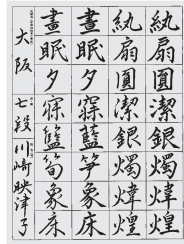 紈扇圓潔銀燭煒煌
紈扇圓潔銀燭煒煌
晝眠夕寐籃笋象床
晝眠夕寐籃筍象床
大阪 七段 川崎映津子